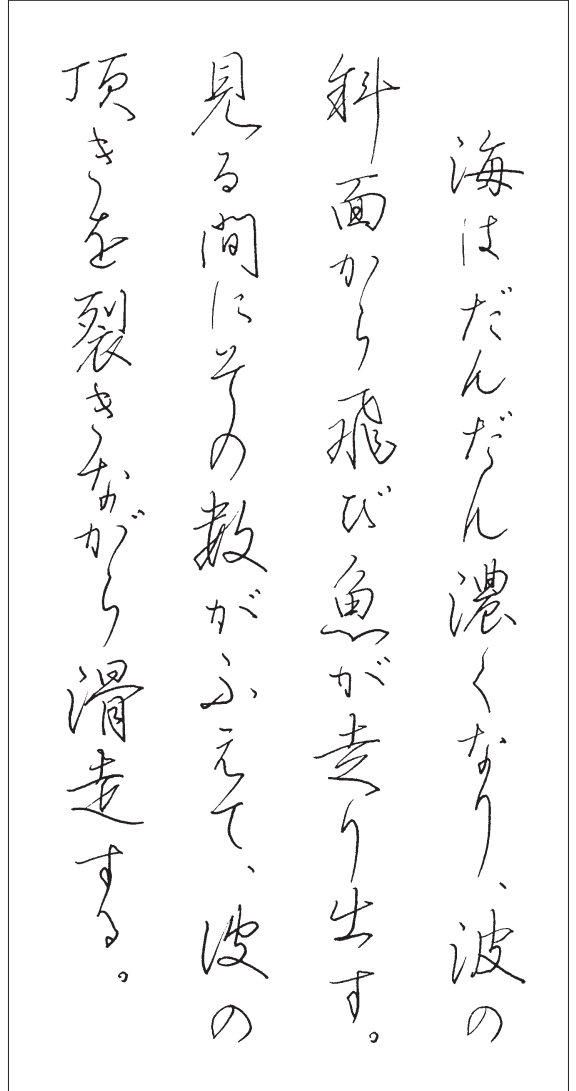 海はだんだん濃くなり、波の
斜面から飛び魚が走り出す。
見る間にその数がふえて、波の
頂きを裂きながら滑走する。